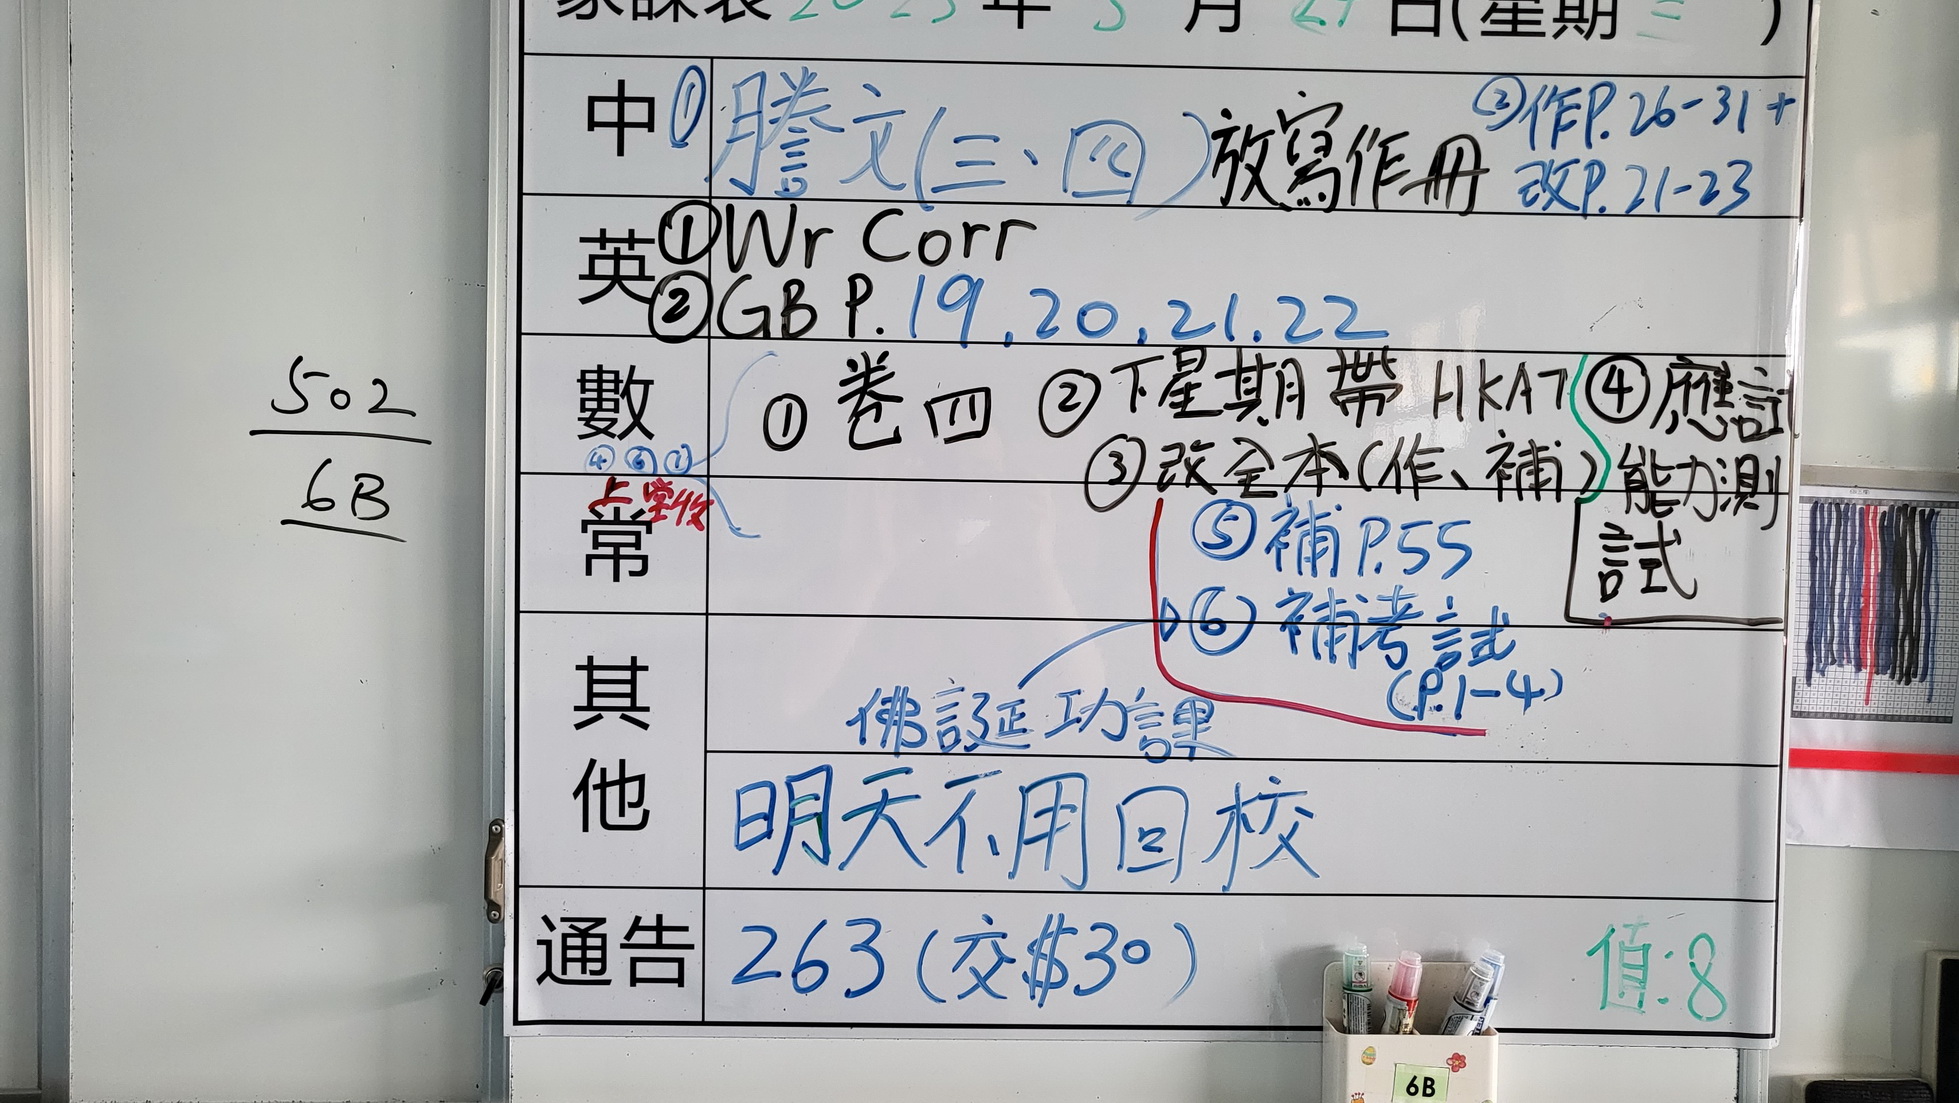 家課表 2025 年 5 月 日(星期三)
中 ① 謄文(三、四)放寫作冊 ②作P.26-31+
改P.21-23
英 ①Wr Corr
②GB P.19,20,21,22
數 ①卷四 ②下星期帶HKAT ④應試
③改全本(作、補) 能力測
試
上堂收
502
6B
常
⑤補P.55
⑥補考試
(P.1-4)
佛誕功課
其
他
明天不用回校
通告 263(交$30) 值:8
6B